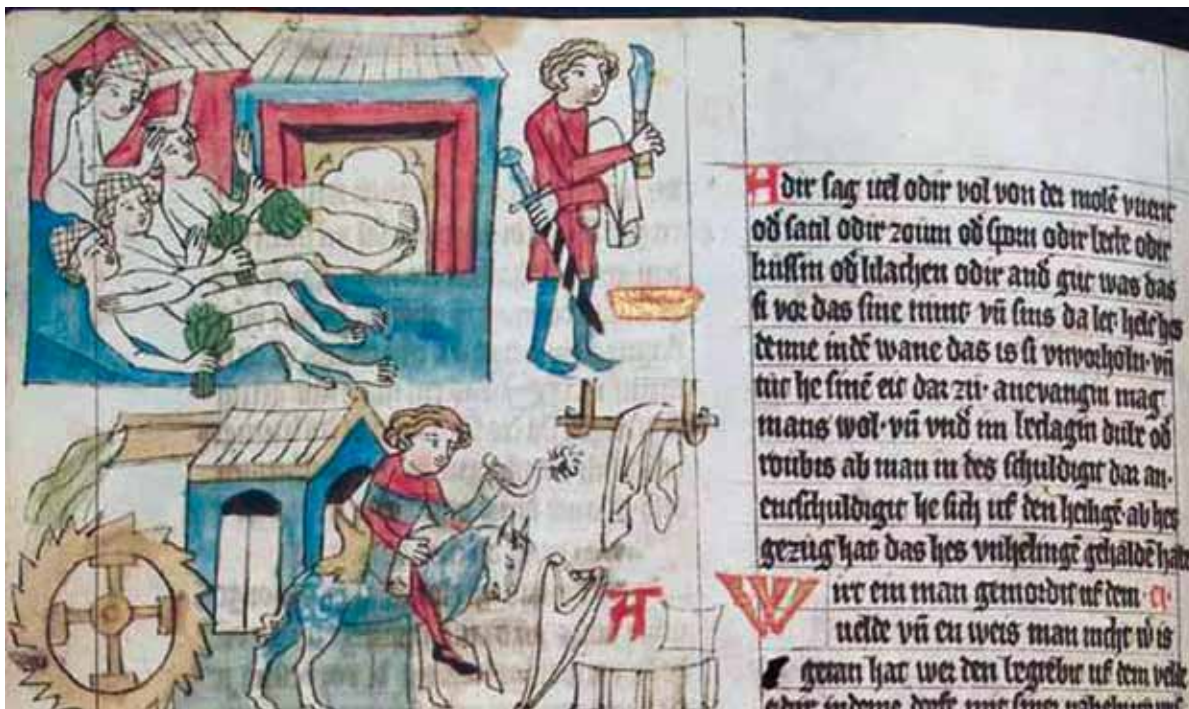 A
Adir sag itel odir vol von der molē vurit
od̄ satil odir zoum od̄ sporn odir lecke odir
kussin od̄ lilachen odir and̄ gut was das
si vor das sine nimt vn̄ sins da let helt hes
denne in dē wane das is si vnvorholn· vn̄
tut he sinē eit dar zu· anevangin mag
mans wol· vn̄ vnd̄ im beclagin dube od̄
roubis ab man in des schuldigit dar an·
entschuldigit he sich uf den heiligē· ab hes
gezug hat das hes vnhelingē gehaldē habe
Wirt ein man gemordit uf dem ·ci·
velde vn̄ en weis man nicht w̄ is
getan hat wer den begrebit uf dem velde
odir indeme dorfe mit siner